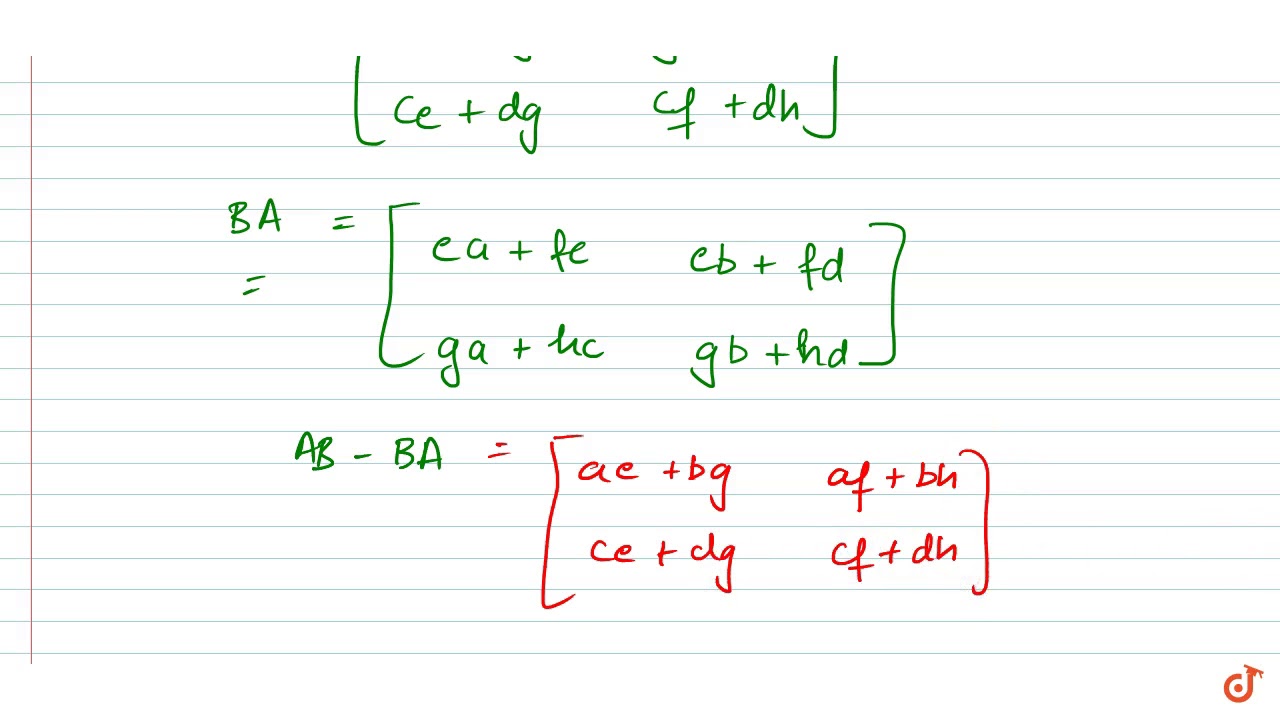 ce + dg cf + dh
BA = ea + fe eb + fd
=
ga + hc gb + hd
AB - BA = ae + bg af + bh
ce + dg cf + dh